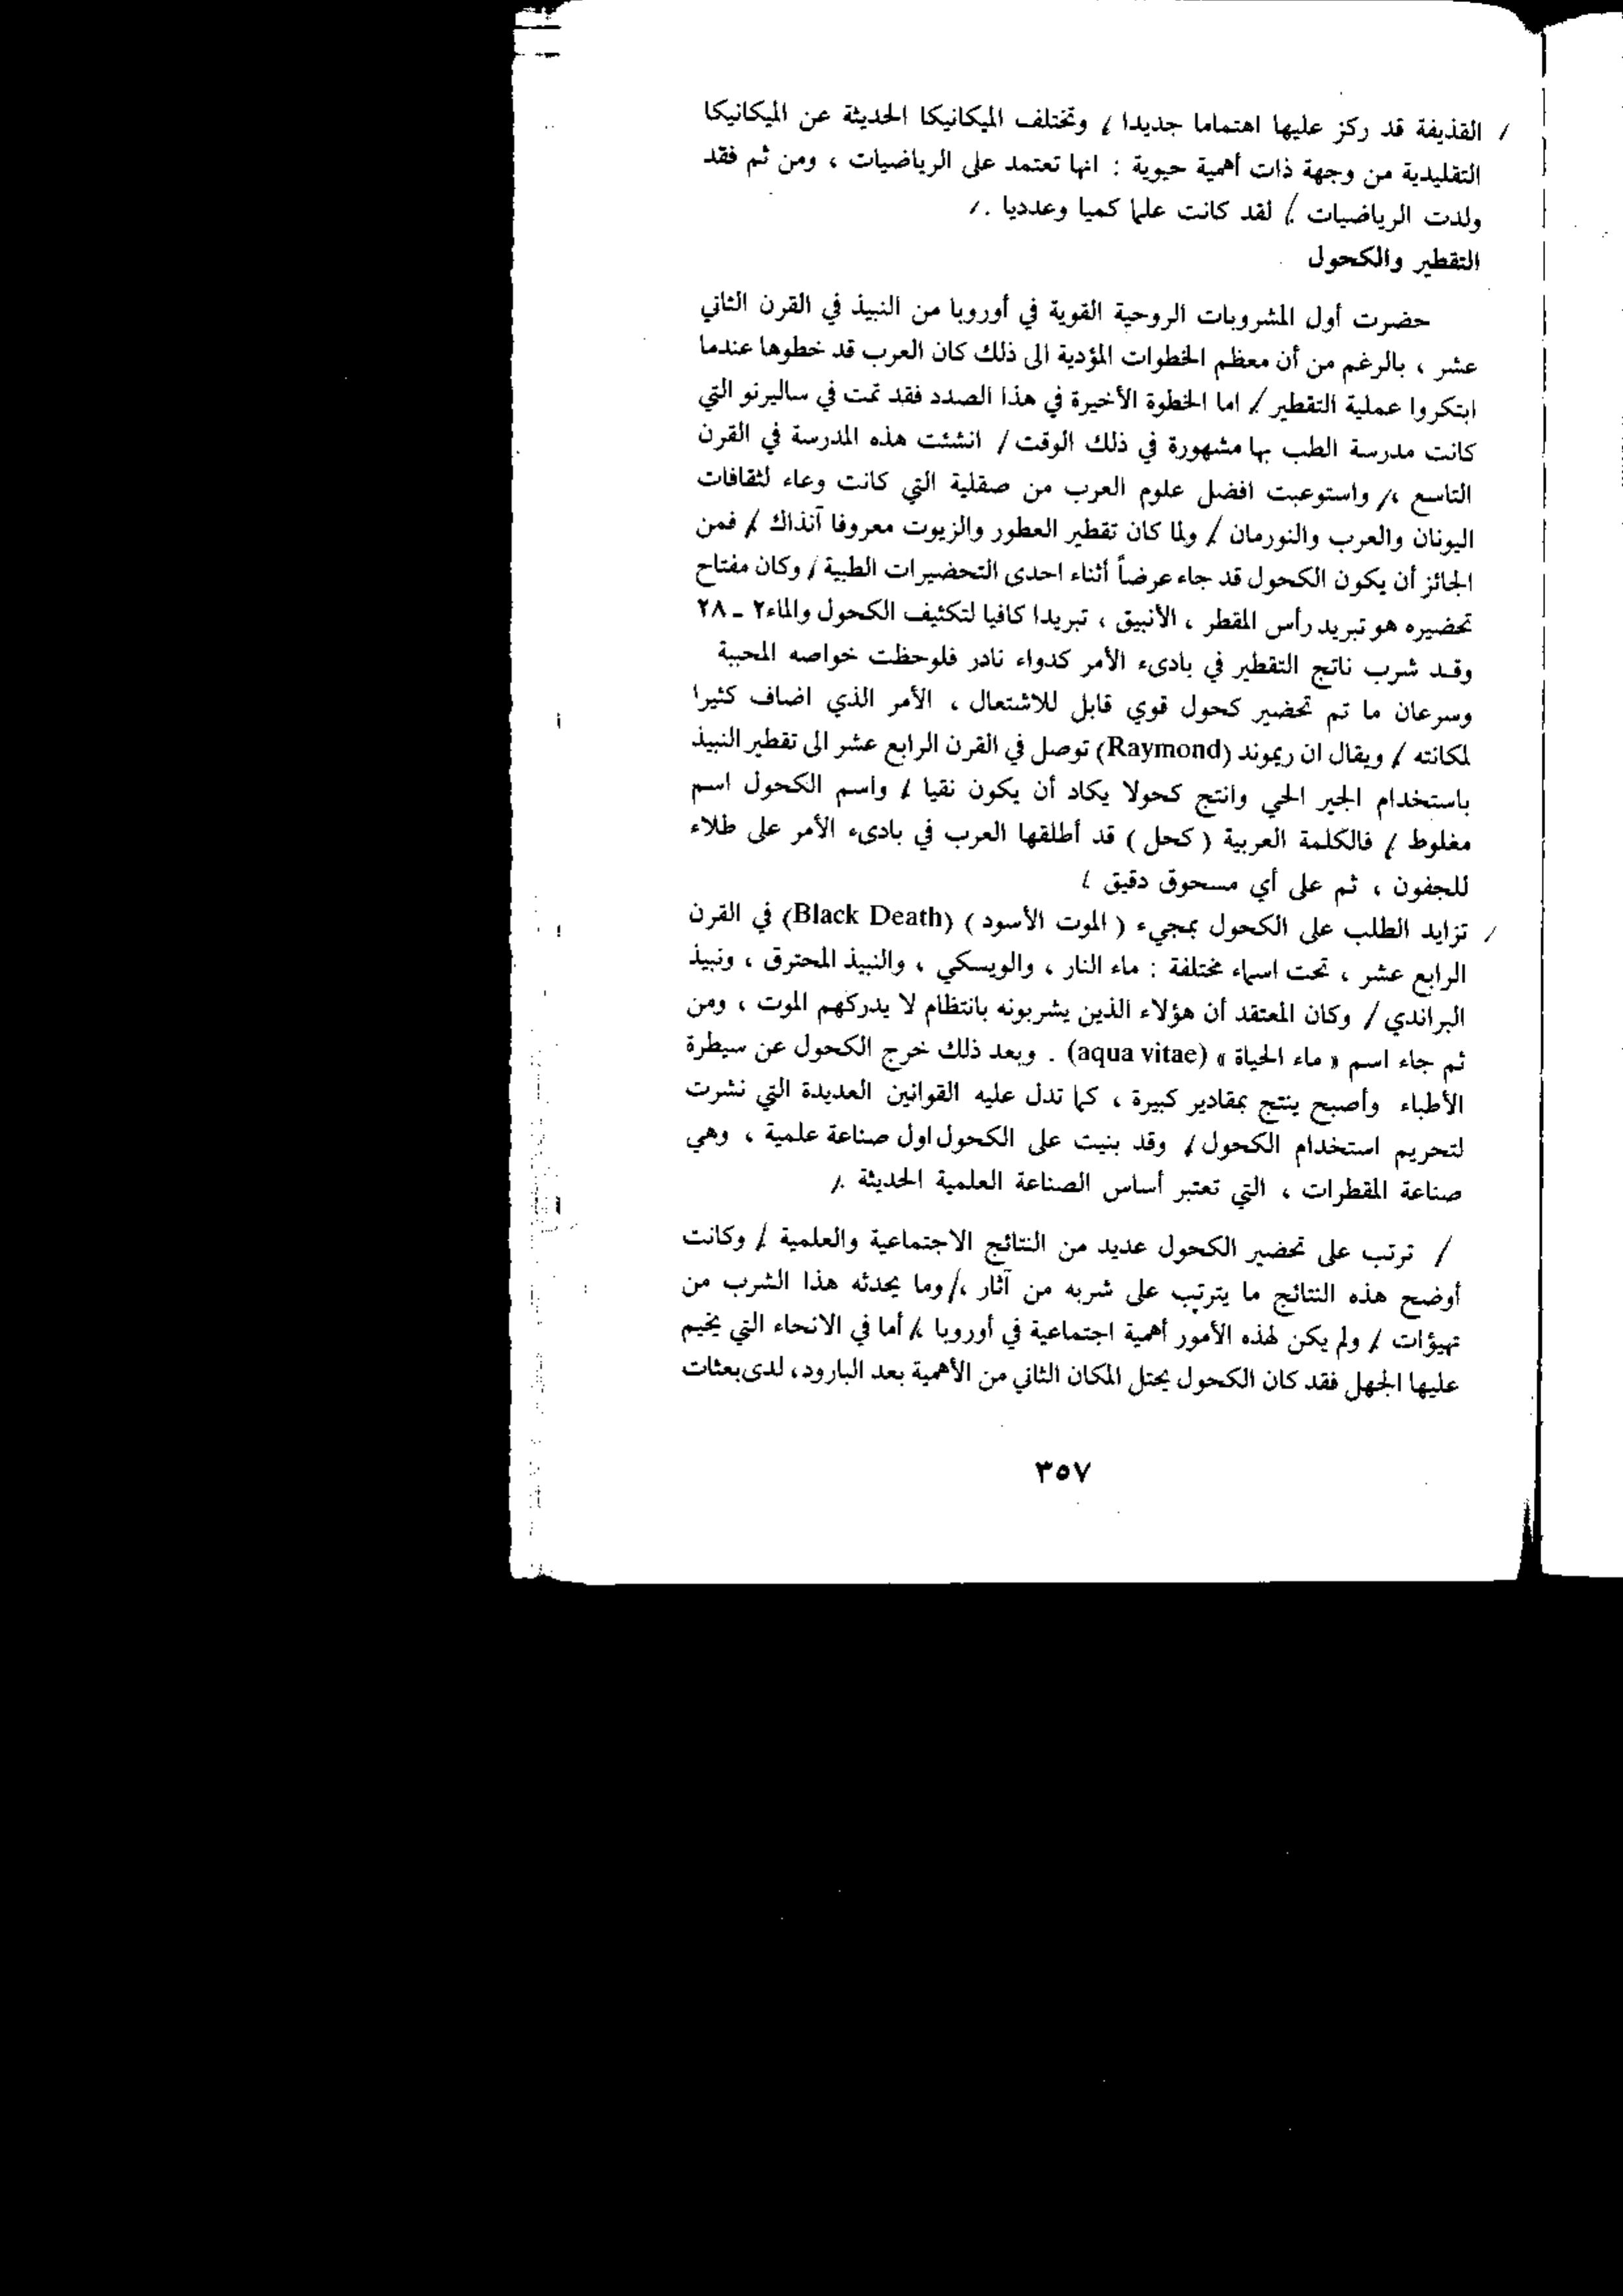 / القذيفة قد ركز عليها اهتماما جديدا / وتختلف الميكانيكا الحديثة عن الميكانيكا
التقليدية من وجهة ذات أهمية حيوية : انها تعتمد على الرياضيات ، ومن ثم فقد
ولدت الرياضيات ./ لقد كانت علما كميا وعدديا ./
التقطير والكحول
حضرت أول المشروبات الروحية القوية في أوروبا من النبيذ في القرن الثاني
عشر ، بالرغم من أن معظم الخطوات المؤدية الى ذلك كان العرب قد خطوها عندما
ابتكروا عملية التقطير ./ اما الخطوة الأخيرة في هذا الصدد فقد تمت في ساليرنو التي
كانت مدرسة الطب بها مشهورة في ذلك الوقت / انشئت هذه المدرسة في القرن
التاسع ،/ واستوعبت افضل علوم العرب من صقلية التي كانت وعاء لثقافات
اليونان والعرب والنورمان ./ ولما كان تقطير العطور والزيوت معروفا آنذاك ./ فمن
الجائز أن يكون الكحول قد جاء عرضاً أثناء احدى التحضيرات الطبية / وكان مفتاح
تحضيره هو تبريد رأس المقطر ، الأنبيق ، تبريدا كافيا لتكثيف الكحول والماء٢ ـ ٢٨
وقد شرب ناتج التقطير في بادىء الأمر كدواء نادر فلوحظت خواصه المحببة
وسرعان ما تم تحضير كحول قوي قابل للاشتعال ، الأمر الذي اضاف كثيرا
لمكانته ./ ويقال ان ريموند (Raymond) توصل في القرن الرابع عشر الى تقطير النبيذ
باستخدام الجير الحي وانتج كحولا يكاد أن يكون نقيا ./ واسم الكحول اسم
مغلوط ./ فالكلمة العربية ( كحل ) قد أطلقها العرب في بادىء الأمر على طلاء
للجفون ، ثم على أي مسحوق دقيق ./
/ تزايد الطلب على الكحول بمجيء ( الموت الأسود ) (Black Death) في القرن
الرابع عشر ، تحت اسماء مختلفة : ماء النار ، والويسكي ، والنبيذ المحترق ، ونبيذ
البراندي / وكان المعتقد أن هؤلاء الذين يشربونه بانتظام لا يدركهم الموت ، ومن
ثم جاء اسم « ماء الحياة » (aqua vitae) . وبعد ذلك خرج الكحول عن سيطرة
الأطباء وأصبح ينتج بمقادير كبيرة ، كما تدل عليه القوانين العديدة التي نشرت
لتحريم استخدام الكحول ./ وقد بنيت على الكحول اول صناعة علمية ، وهي
صناعة المقطرات ، التي تعتبر أساس الصناعة العلمية الحديثة ./
/ ترتب على تحضير الكحول عديد من النتائج الاجتماعية والعلمية ./ وكانت
أوضح هذه النتائج ما يترتب على شربه من آثار ،/ وما يحدثه هذا الشرب من
تهيؤات ./ ولم يكن لهذه الأمور أهمية اجتماعية في أوروبا ./ أما في الانحاء التي يخيم
عليها الجهل فقد كان الكحول يحتل المكان الثاني من الأهمية بعد البارود، لدى بعثات
٣٥٧